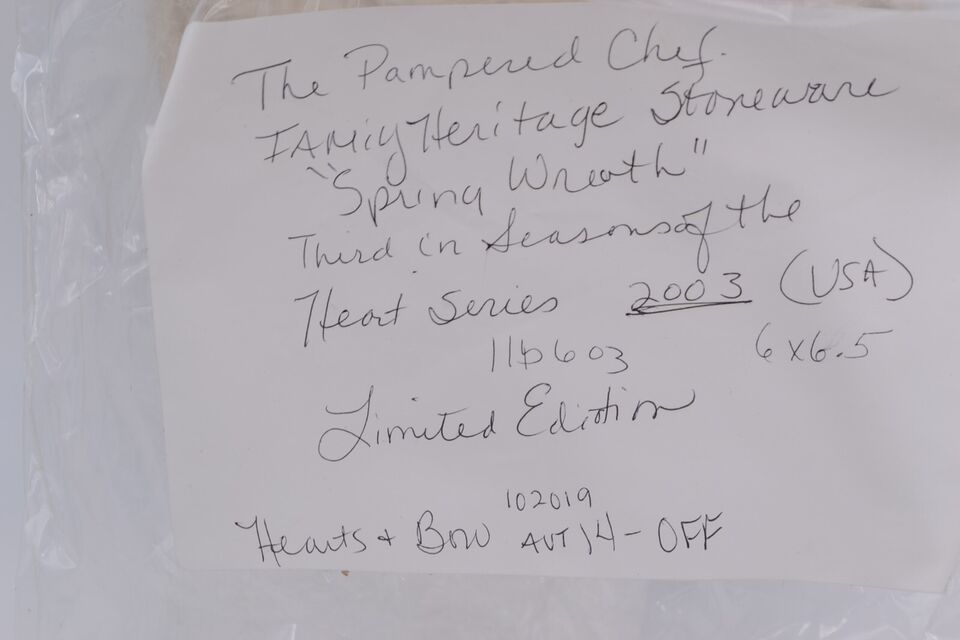 The Pampered Chef.
FAMily Heritage Stoneware
"Spring Wreath"
Third in Seasons of the
Heart Series 2003 (USA)
6 x 6.5
Limited Edition
102019
Hearts + Bow AVT 14 - OFF